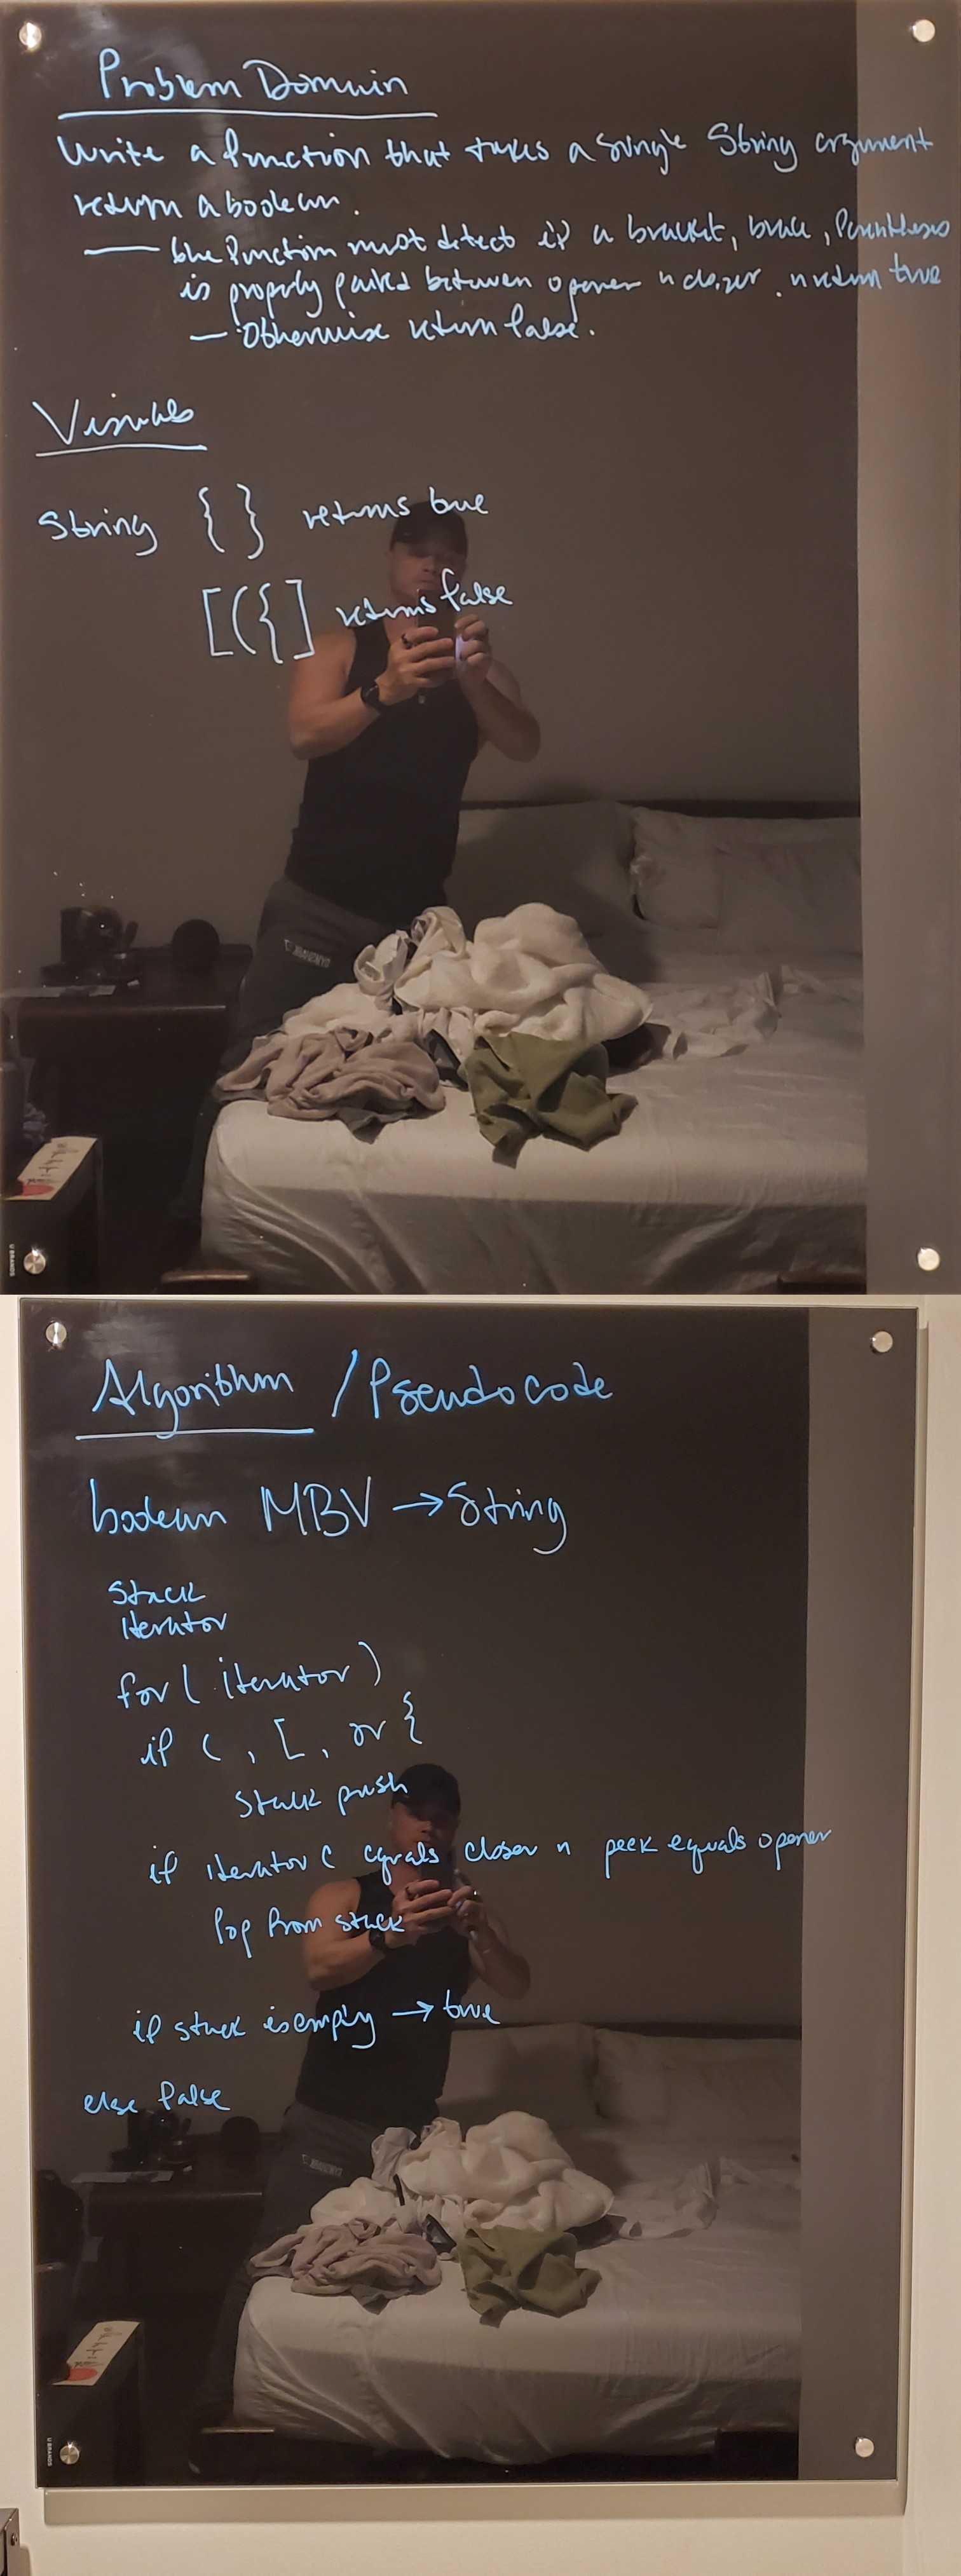 Problem Domain
Write a function that takes a single String argument
return a boolean.
— the function must detect if a bracket, brace, Parentheses
is properly paired between opener n closer. n return true
— Otherwise return false.
Visuals
String { } returns true
[({] returns false
U BRANDS
Algorithm / Pseudocode
boolean MBV → String
Stack
iterator
for ( iterator )
if ( , [ , or {
Stack push
if iterator c equals closer n peek equals opener
Pop from stack
if stack isempty → true
else false
U BRANDS